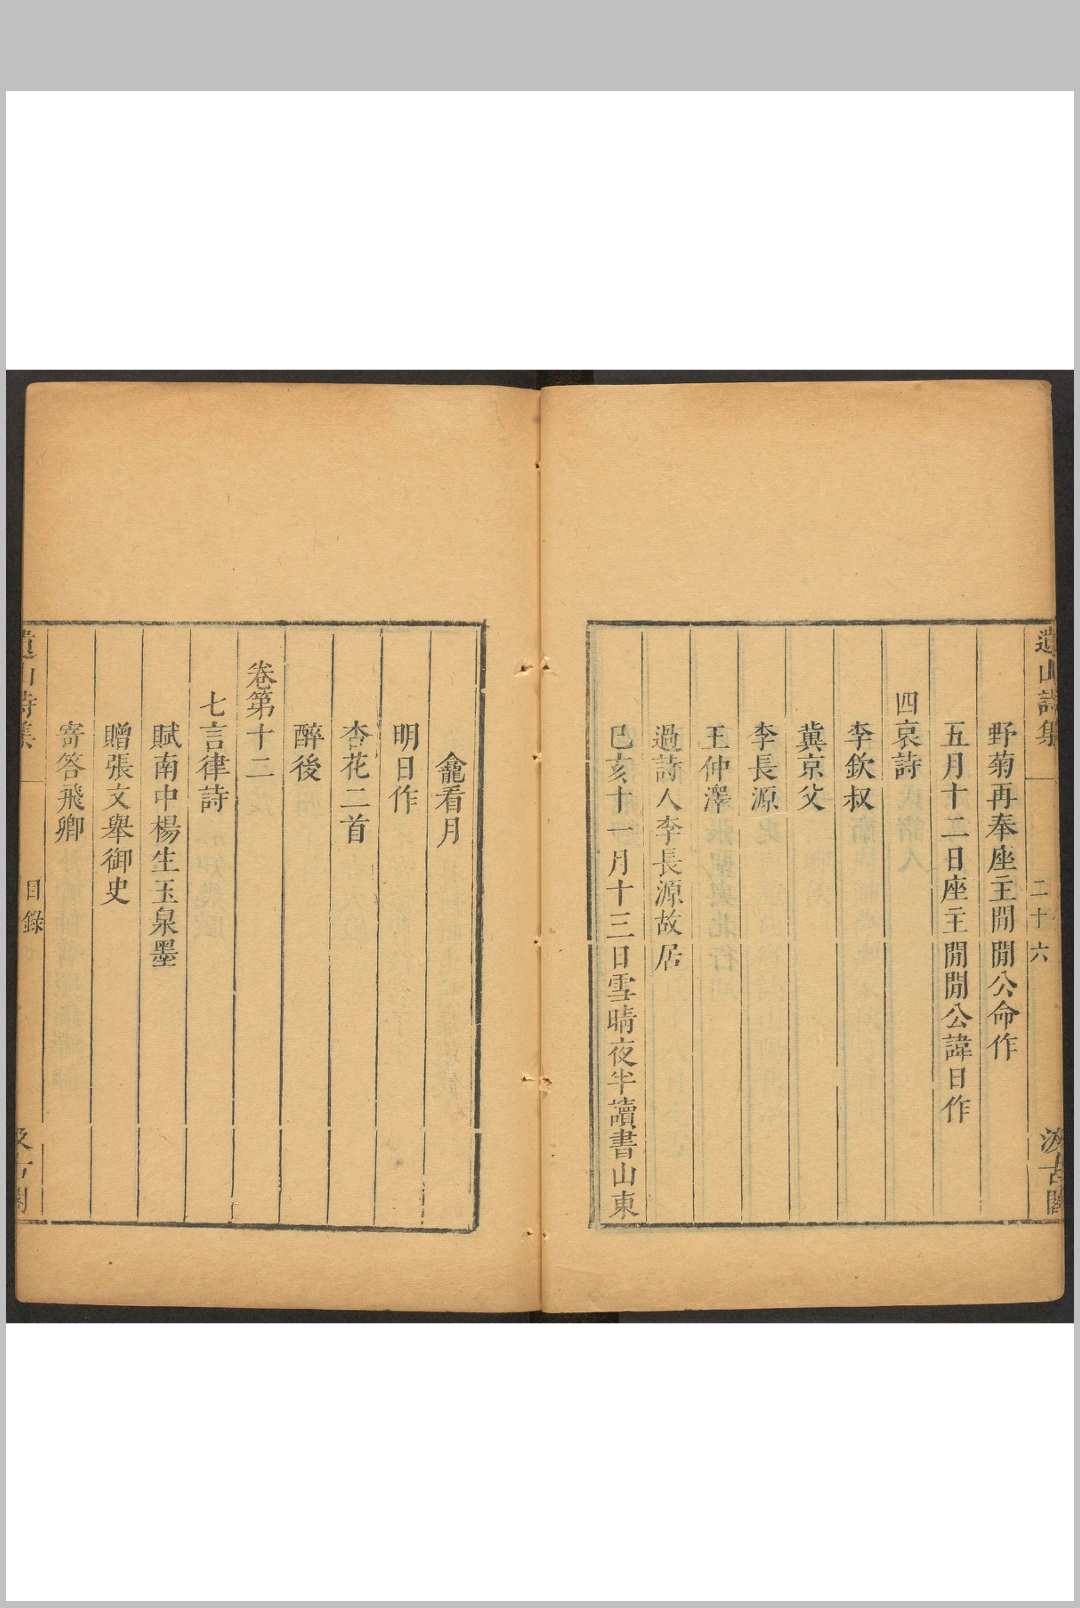 遺山詩集
二十六
汲古閣
野菊再奉座主閒閒公命作
五月十二日座主閒閒公諱日作
四哀詩
李欽叔
冀京父
李長源
王仲澤
過詩人李長源故居
已亥十一月十三日雪晴夜半讀書山東
龕看月
明日作
杏花二首
醉後
卷第十二
七言律詩
賦南中楊生玉泉墨
贈張文舉御史
寄答飛卿
遺山詩集
目錄
汲古閣